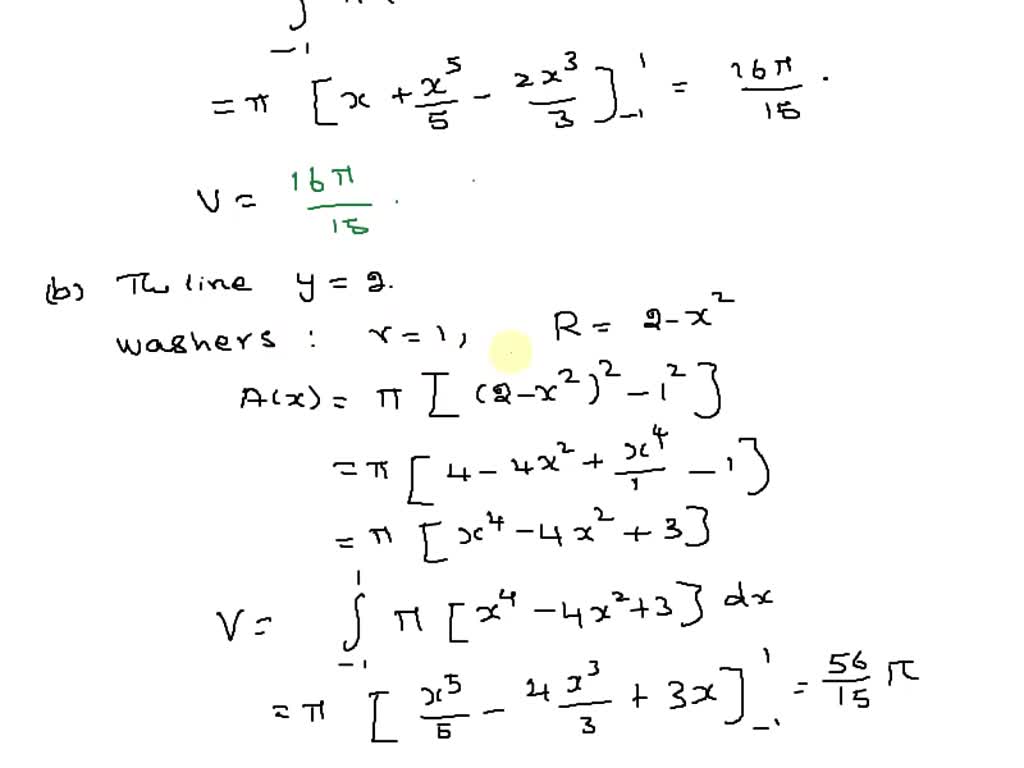 ∫
-1
= π [x + x⁵/5 - 2x³/3]₋₁¹ = 16π/15 .
V = 16π/15 .
(b) The line y = 2.
washers : r = 1, R = 2 - x²
A(x) = π [(2 - x²)² - 1²]
= π [4 - 4x² + x⁴/1 - 1)
= π [x⁴ - 4x² + 3]
V = ∫₋₁¹ π [x⁴ - 4x² + 3] dx
= π [x⁵/5 - 4x³/3 + 3x]₋₁¹ = 56/15 π